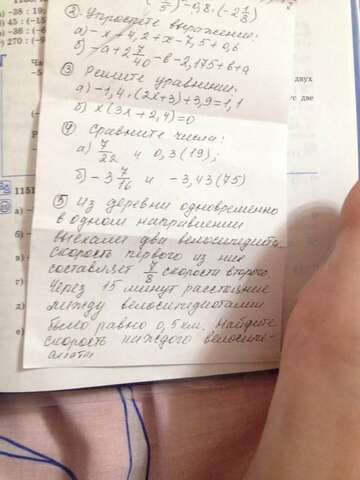 ) - 9,8 · (-2 1/8)
② Упростите выражения:
а) -x - 4,2 + x - 7,5 + 0,6
б) -a + 2 7/40 - в - 2,175 + в + a
③ Решите уравнения:
а) -1,4 · (2x+3) + 3,9 = 1,1
б) x(3x + 2,4) = 0
④ Сравните числа:
а) 7/22 и 0,3(19);
б) -3 7/16 и -3,43(75)
⑤ Из деревни одновременно
в одном направлении
выехали два велосипедиста.
Скорость первого из них
составляет 7/8 скорости второго.
Через 15 минут расстояние
между велосипедистами
было равно 0,5 км. Найдите
скорость каждого велосипе-
двух
две
1151
а)
б)
в)
г)
д)
е)